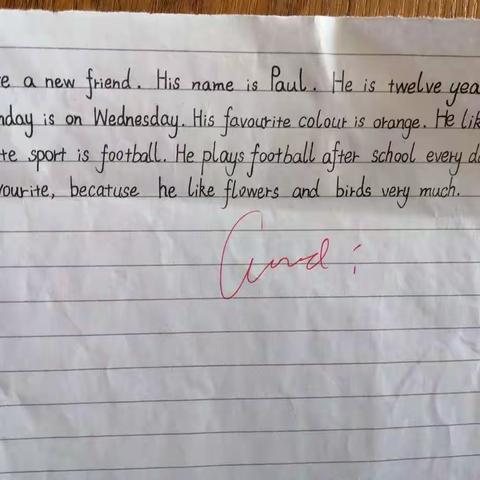 e a new friend. His name is Paul. He is twelve yea
day is on Wednesday. His favourite colour is orange. He lik
te sport is football. He plays football after school every d
vourite, becatuse he like flowers and birds very much.